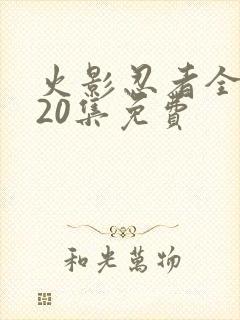 火影忍者全
20集免費
和光萬物